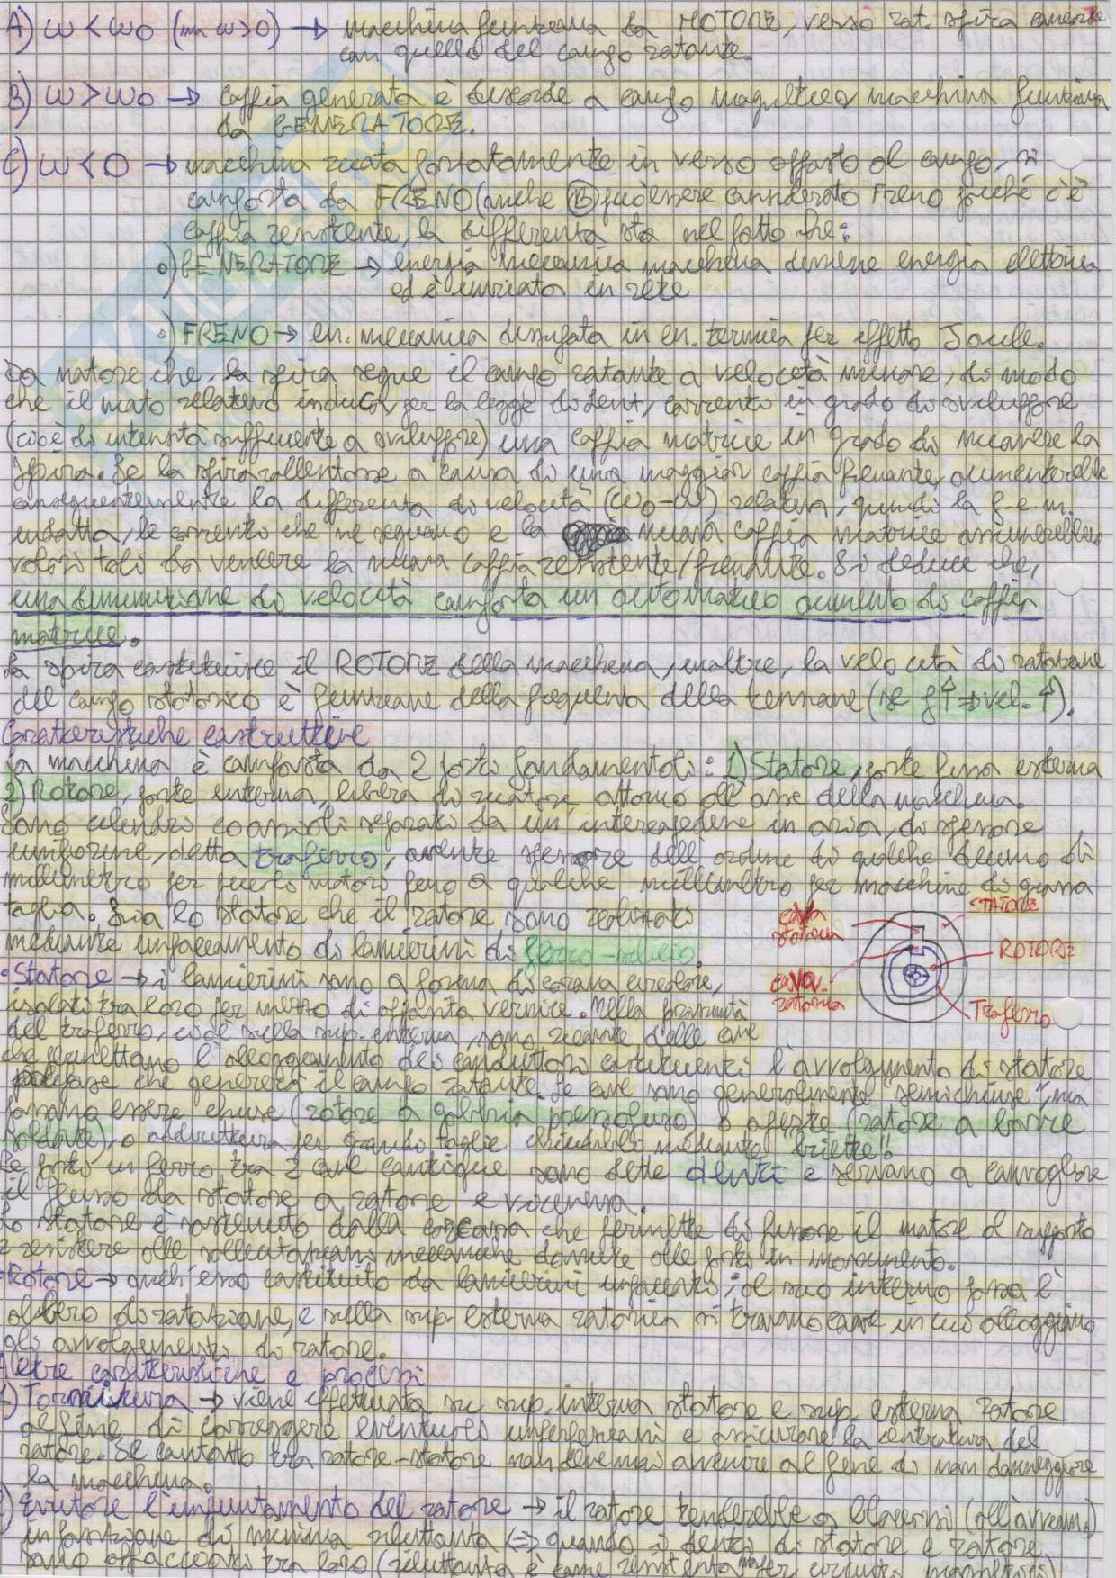 A) ω < ω0 (ma ω>0) → macchina funziona da MOTORE, verso rot. spira concorde
con quello del campo rotante.
B) ω > ω0 → coppia generata è discorde a campo magnetico, macchina funziona
da GENERATORE.
C) ω < 0 → macchina ruota forzatamente in verso opposto al campo, si
comporta da FRENO (anche B può essere considerato freno poiché c'è
coppia resistente, la differenza sta nel fatto che:
o) GENERATORE → energia meccanica macchina diviene energia elettrica
ed è inviata in rete
o) FRENO → en. meccanica dissipata in en. termica per effetto Joule.
Da notare che, la spira segue il campo rotante a velocità minore, di modo
che il moto relativo induca, per la legge di Lenz, corrente in grado di sviluppare
(cioè di intensità sufficiente a sviluppare) una coppia motrice in grado di muovere la
spira. Se la spira rallentasse a causa di una maggior coppia frenante, aumenterebbe
conseguentemente la differenza di velocità (ω0-ω) relativa, quindi la f.e.m.
indotta, le corrente che ne seguano e la nuova coppia motrice assumerebbe
valori tali da vincere la nuova coppia resistente/frenante. Si deduce che,
una diminuzione di velocità comporta un automatico aumento di coppia
motrice.
La spira costituisce il ROTORE della macchina, inoltre, la velocità di rotazione
del campo rotorico è funzione della frequenza della tensione (se f↑ ⇒ vel. ↑).
Caratteristiche costruttive
La macchina è composta da 2 parti fondamentali: 1) Statore, parte fissa esterna
2) Rotore, parte interna, libera di ruotare attorno all'asse della macchina.
Sono cilindri coassiali separati da un'intercapedine in aria, di spessore
uniforme, detta traferro, avente spessore dell'ordine di qualche decimo di
millimetro per piccoli motori fino a qualche millimetro per macchine di grossa
taglia. Sia lo statore che il rotore sono realizzati
mediante impaccamento di lamierini di ferro-silicio.
cava
statorica
cava
rotorica
STATORE
ROTORE
Traferro
• Statore → i lamierini sono a forma di corona circolare,
isolati tra loro per mezzo di apposita vernice. Nella prossimità
del traferro, cioè nella sup. interna, sono ricavate delle cave
che permettono l'alloggiamento dei conduttori costituenti l'avvolgimento di statore
polifase che genererà il campo rotante. Le cave sono generalmente semichiuse ma
possono essere chiuse (rotore a gabbia pressofuso) o aperte (rotore a barre
saldate), o addirittura per grandi taglie chiudibili mediante "biette"
Le parti in ferro tra 2 cave contigue sono dette denti e servono a convogliare
il flusso da statore a rotore e viceversa.
Lo statore è sostenuto dalla carcassa che permette di fissare il motore al supporto
e resistere alle sollecitazioni meccaniche dovute alle parti in movimento.
• Rotore → anch'esso costituito da lamierini impaccati; al suo interno passa l'
albero di rotazione, e nella sup. esterna rotorica si trovano cave in cui alloggiano
gli avvolgimenti di rotore.
Altre caratteristiche e processi
Tornitura → viene effettuata su sup. interna statore e sup. esterna rotore
al fine di correggere eventuali imperfezioni e assicurare la centratura del
rotore. Il contatto tra rotore-statore non deve mai avvenire al fine di non danneggiare
la macchina.
Evitare l'impuntamento del rotore → il rotore tenderebbe a bloccarsi (all'avviam.)
in posizione di minima riluttanza (⇒ quando i denti di statore e rotore
sono affacciati tra loro (riluttanza è come resistenza per circuiti magnetici)